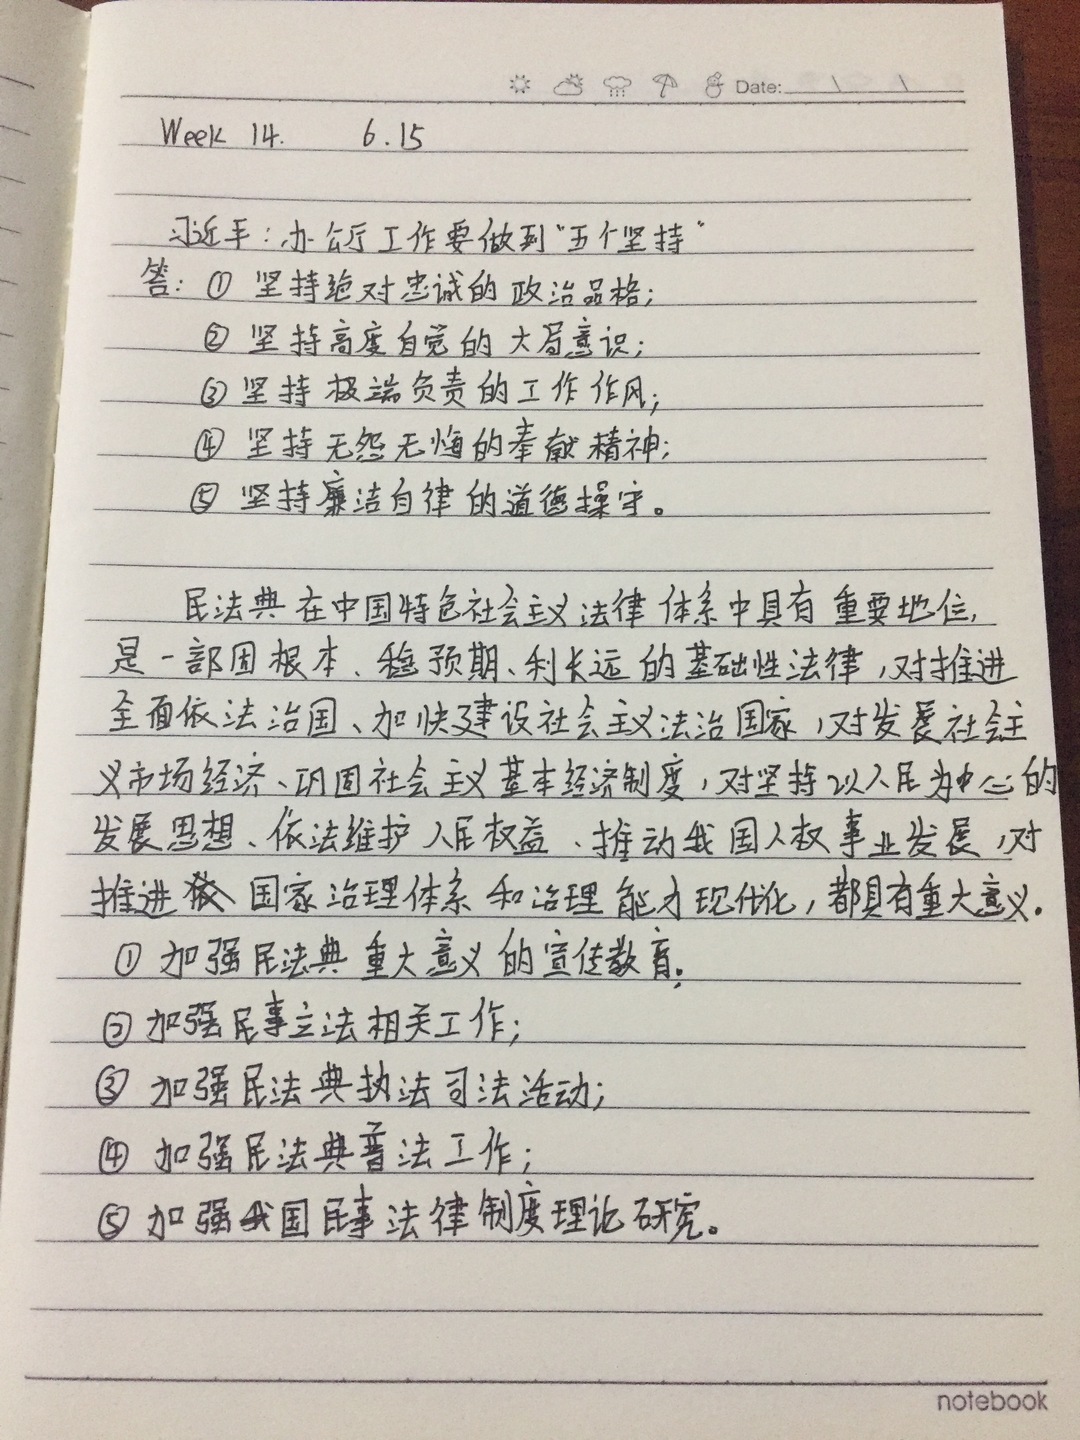 Date:
Week 14. 6.15
习近平：办公厅工作要做到“五个坚持”
答：① 坚持绝对忠诚的政治品格；
② 坚持高度自觉的大局意识；
③ 坚持极端负责的工作作风；
④ 坚持无怨无悔的奉献精神；
⑤ 坚持廉洁自律的道德操守。
民法典在中国特色社会主义法律体系中具有重要地位，
是一部固根本、稳预期、利长远的基础性法律，对推进
全面依法治国、加快建设社会主义法治国家，对发展社会主
义市场经济、巩固社会主义基本经济制度，对坚持以人民为中心的
发展思想、依法维护人民权益、推动我国人权事业发展，对
推进国家治理体系和治理能力现代化，都具有重大意义。
① 加强民法典重大意义的宣传教育；
② 加强民事立法相关工作；
③ 加强民法典执法司法活动；
④ 加强民法典普法工作；
⑤ 加强我国民事法律制度理论研究。
notebook